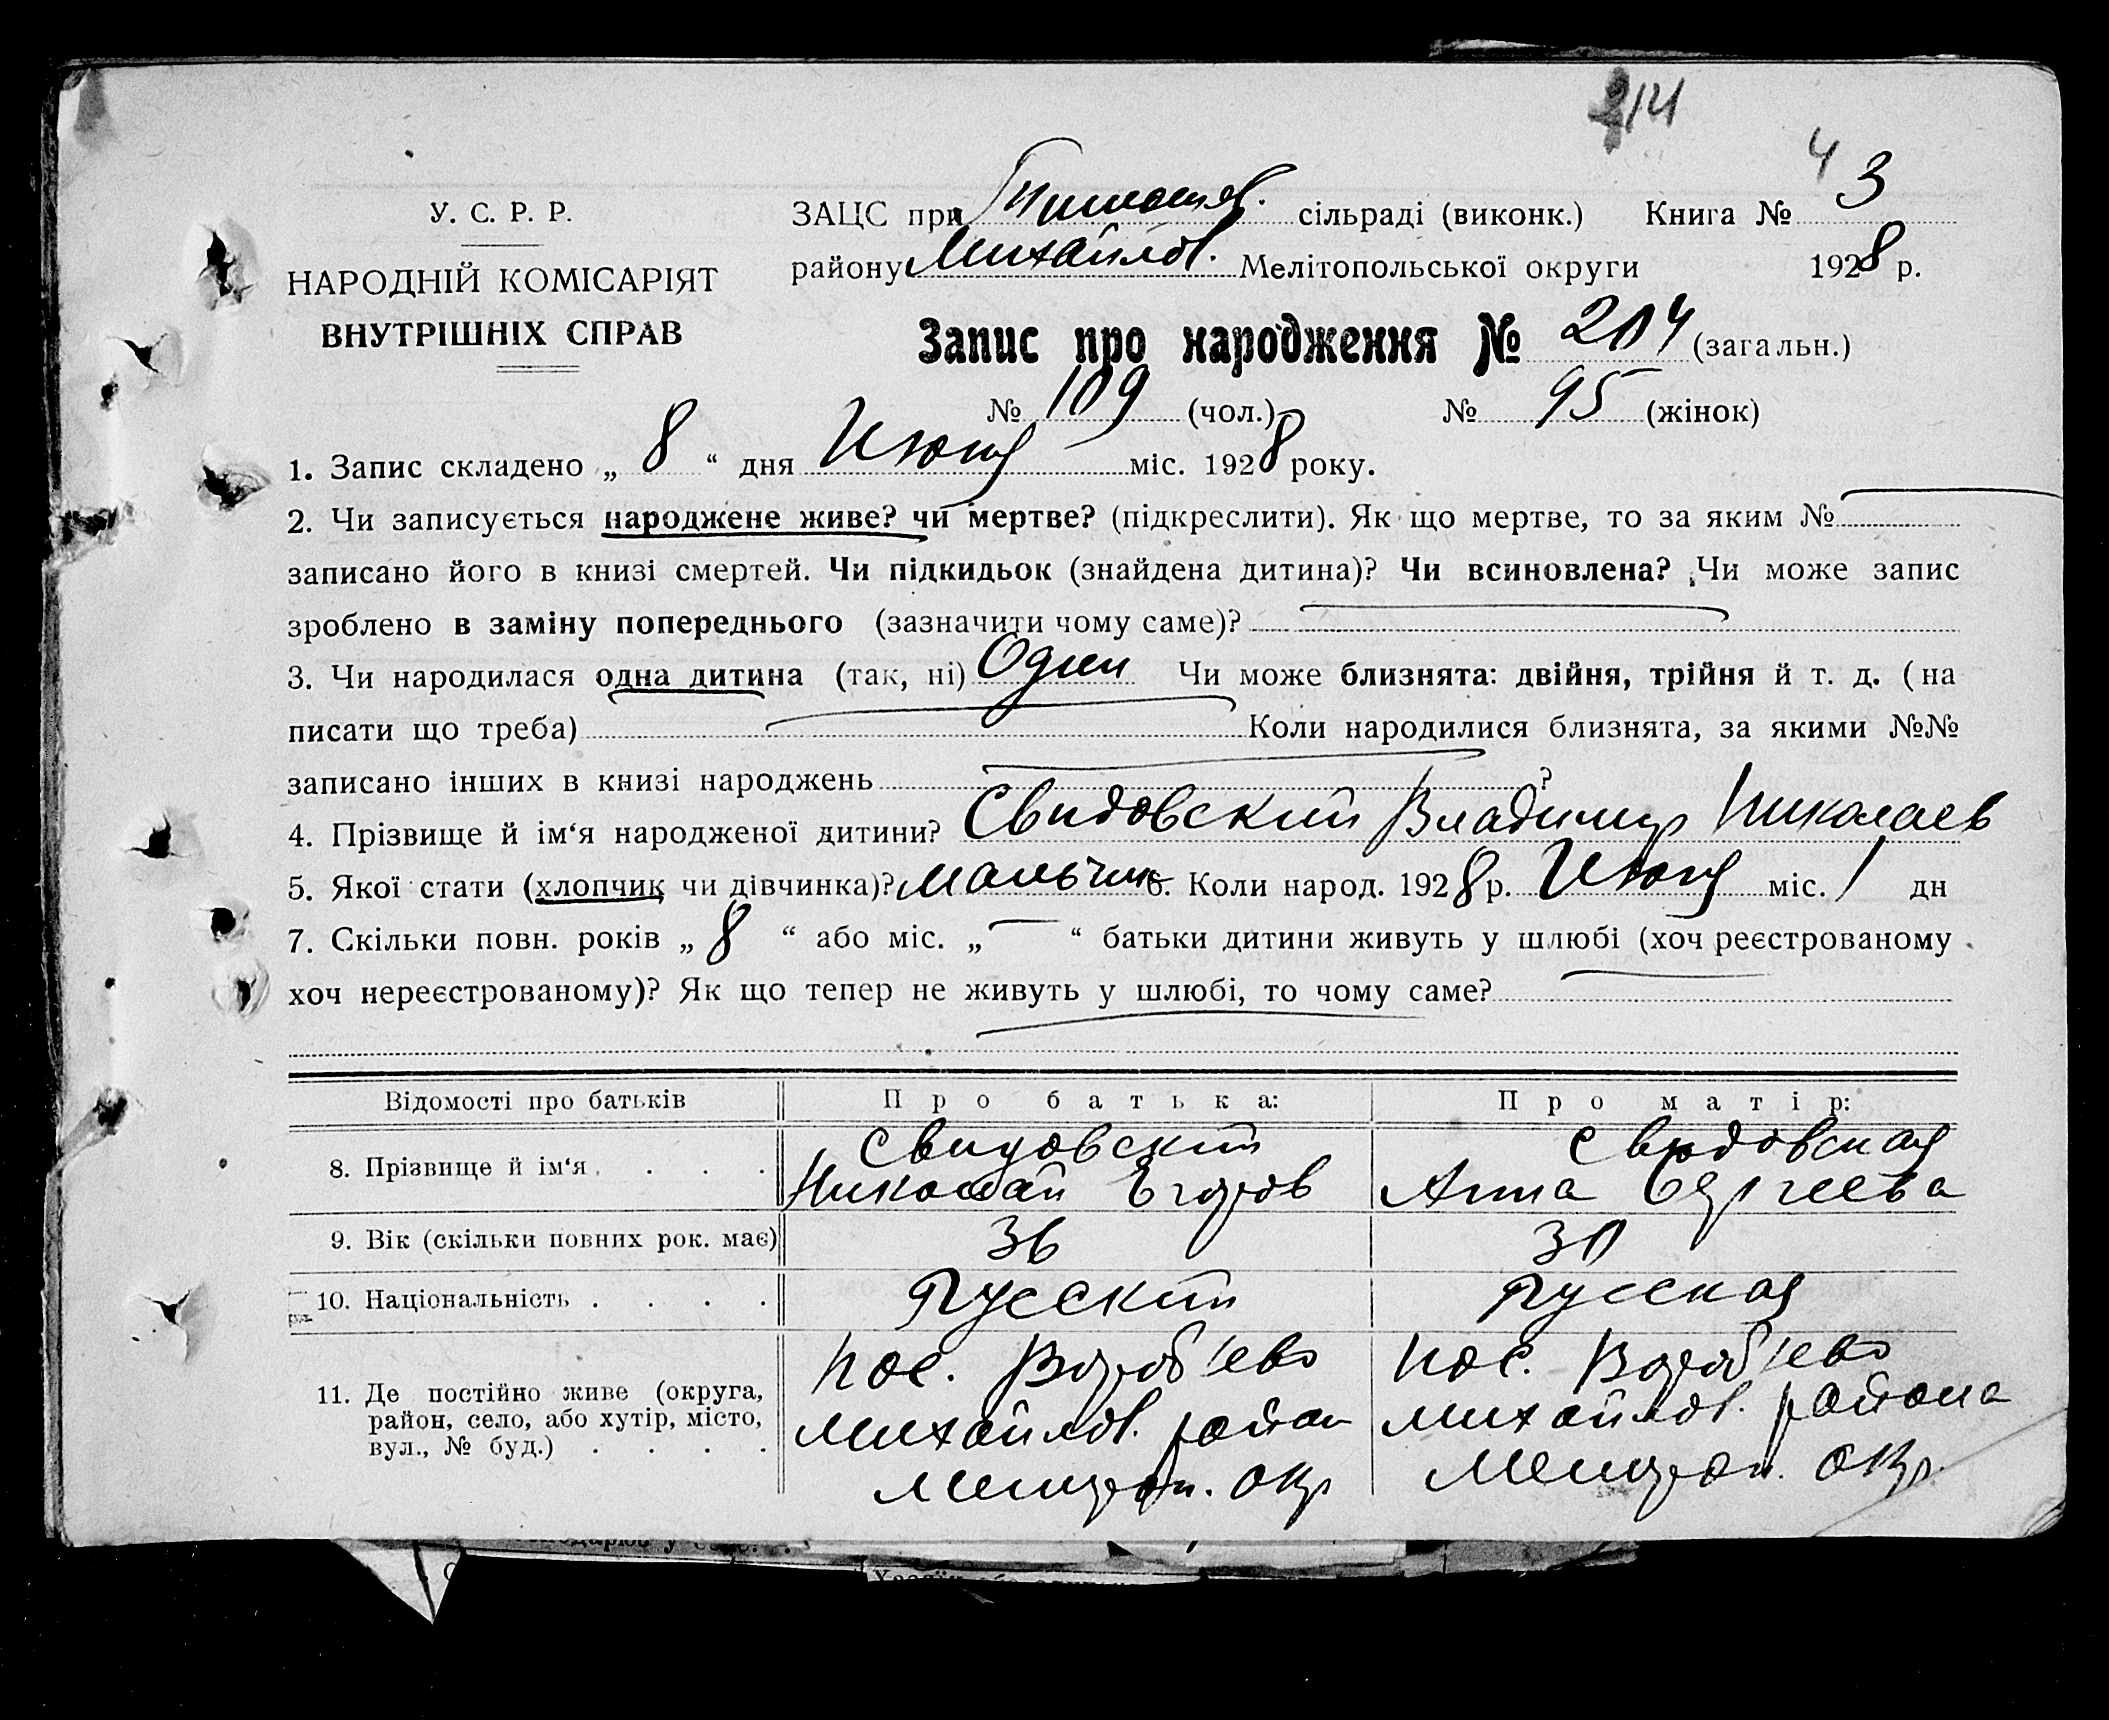 214
4
У. С. Р. Р.
ЗАЦС при Тимошев. сільраді (виконк.) Книга № 3
району Михайлов. Мелітопольської округи 1928 р.
НАРОДНІЙ КОМІСАРІЯТ
ВНУТРІШНІХ СПРАВ
Запис про народження № 204 (загальн.)
№ 109 (чол.) № 95 (жінок)
1. Запис складено „ 8 “ дня Июня міс. 1928 року.
2. Чи записується народжене живе? чи мертве? (підкреслити). Як що мертве, то за яким №
записано його в книзі смертей. Чи підкидьок (знайдена дитина)? Чи всиновлена? Чи може запис
зроблено в заміну попереднього (зазначити чому саме)?
3. Чи народилася одна дитина (так, ні) Один Чи може близнята: двійня, трійня й т. д. (на
писати що треба) Коли народилися близнята, за якими №№
записано інших в книзі народжень ?
4. Прізвище й ім‘я народженої дитини? Свидовский Владимир Николаев
5. Якої стати (хлопчик чи дівчинка)? мальчик 6. Коли народ. 1928 р. Июня міс. 1 дн
7. Скільки повн. років „ 8 “ або міс. „ — “ батьки дитини живуть у шлюбі (хоч реєстрованому
хоч нереєстрованому)? Як що тепер не живуть у шлюбі, то чому саме?
Відомості про батьків Про батька: Про матір:
8. Прізвище й ім‘я . . . . Свидовский Свидовская
Николай Егоров Анна Сергеева
9. Вік (скільки повних рок. має) 36 30
10. Національність . . . . Русский Русская
11. Де постійно живе (округа, район, село, або хутір, місто, вул., № буд.) . . . . пос. Вороб'ево пос. Вороб'ево
Михайлов. район Михайлов. района
Мелитоп. окр Мелитоп. окр.